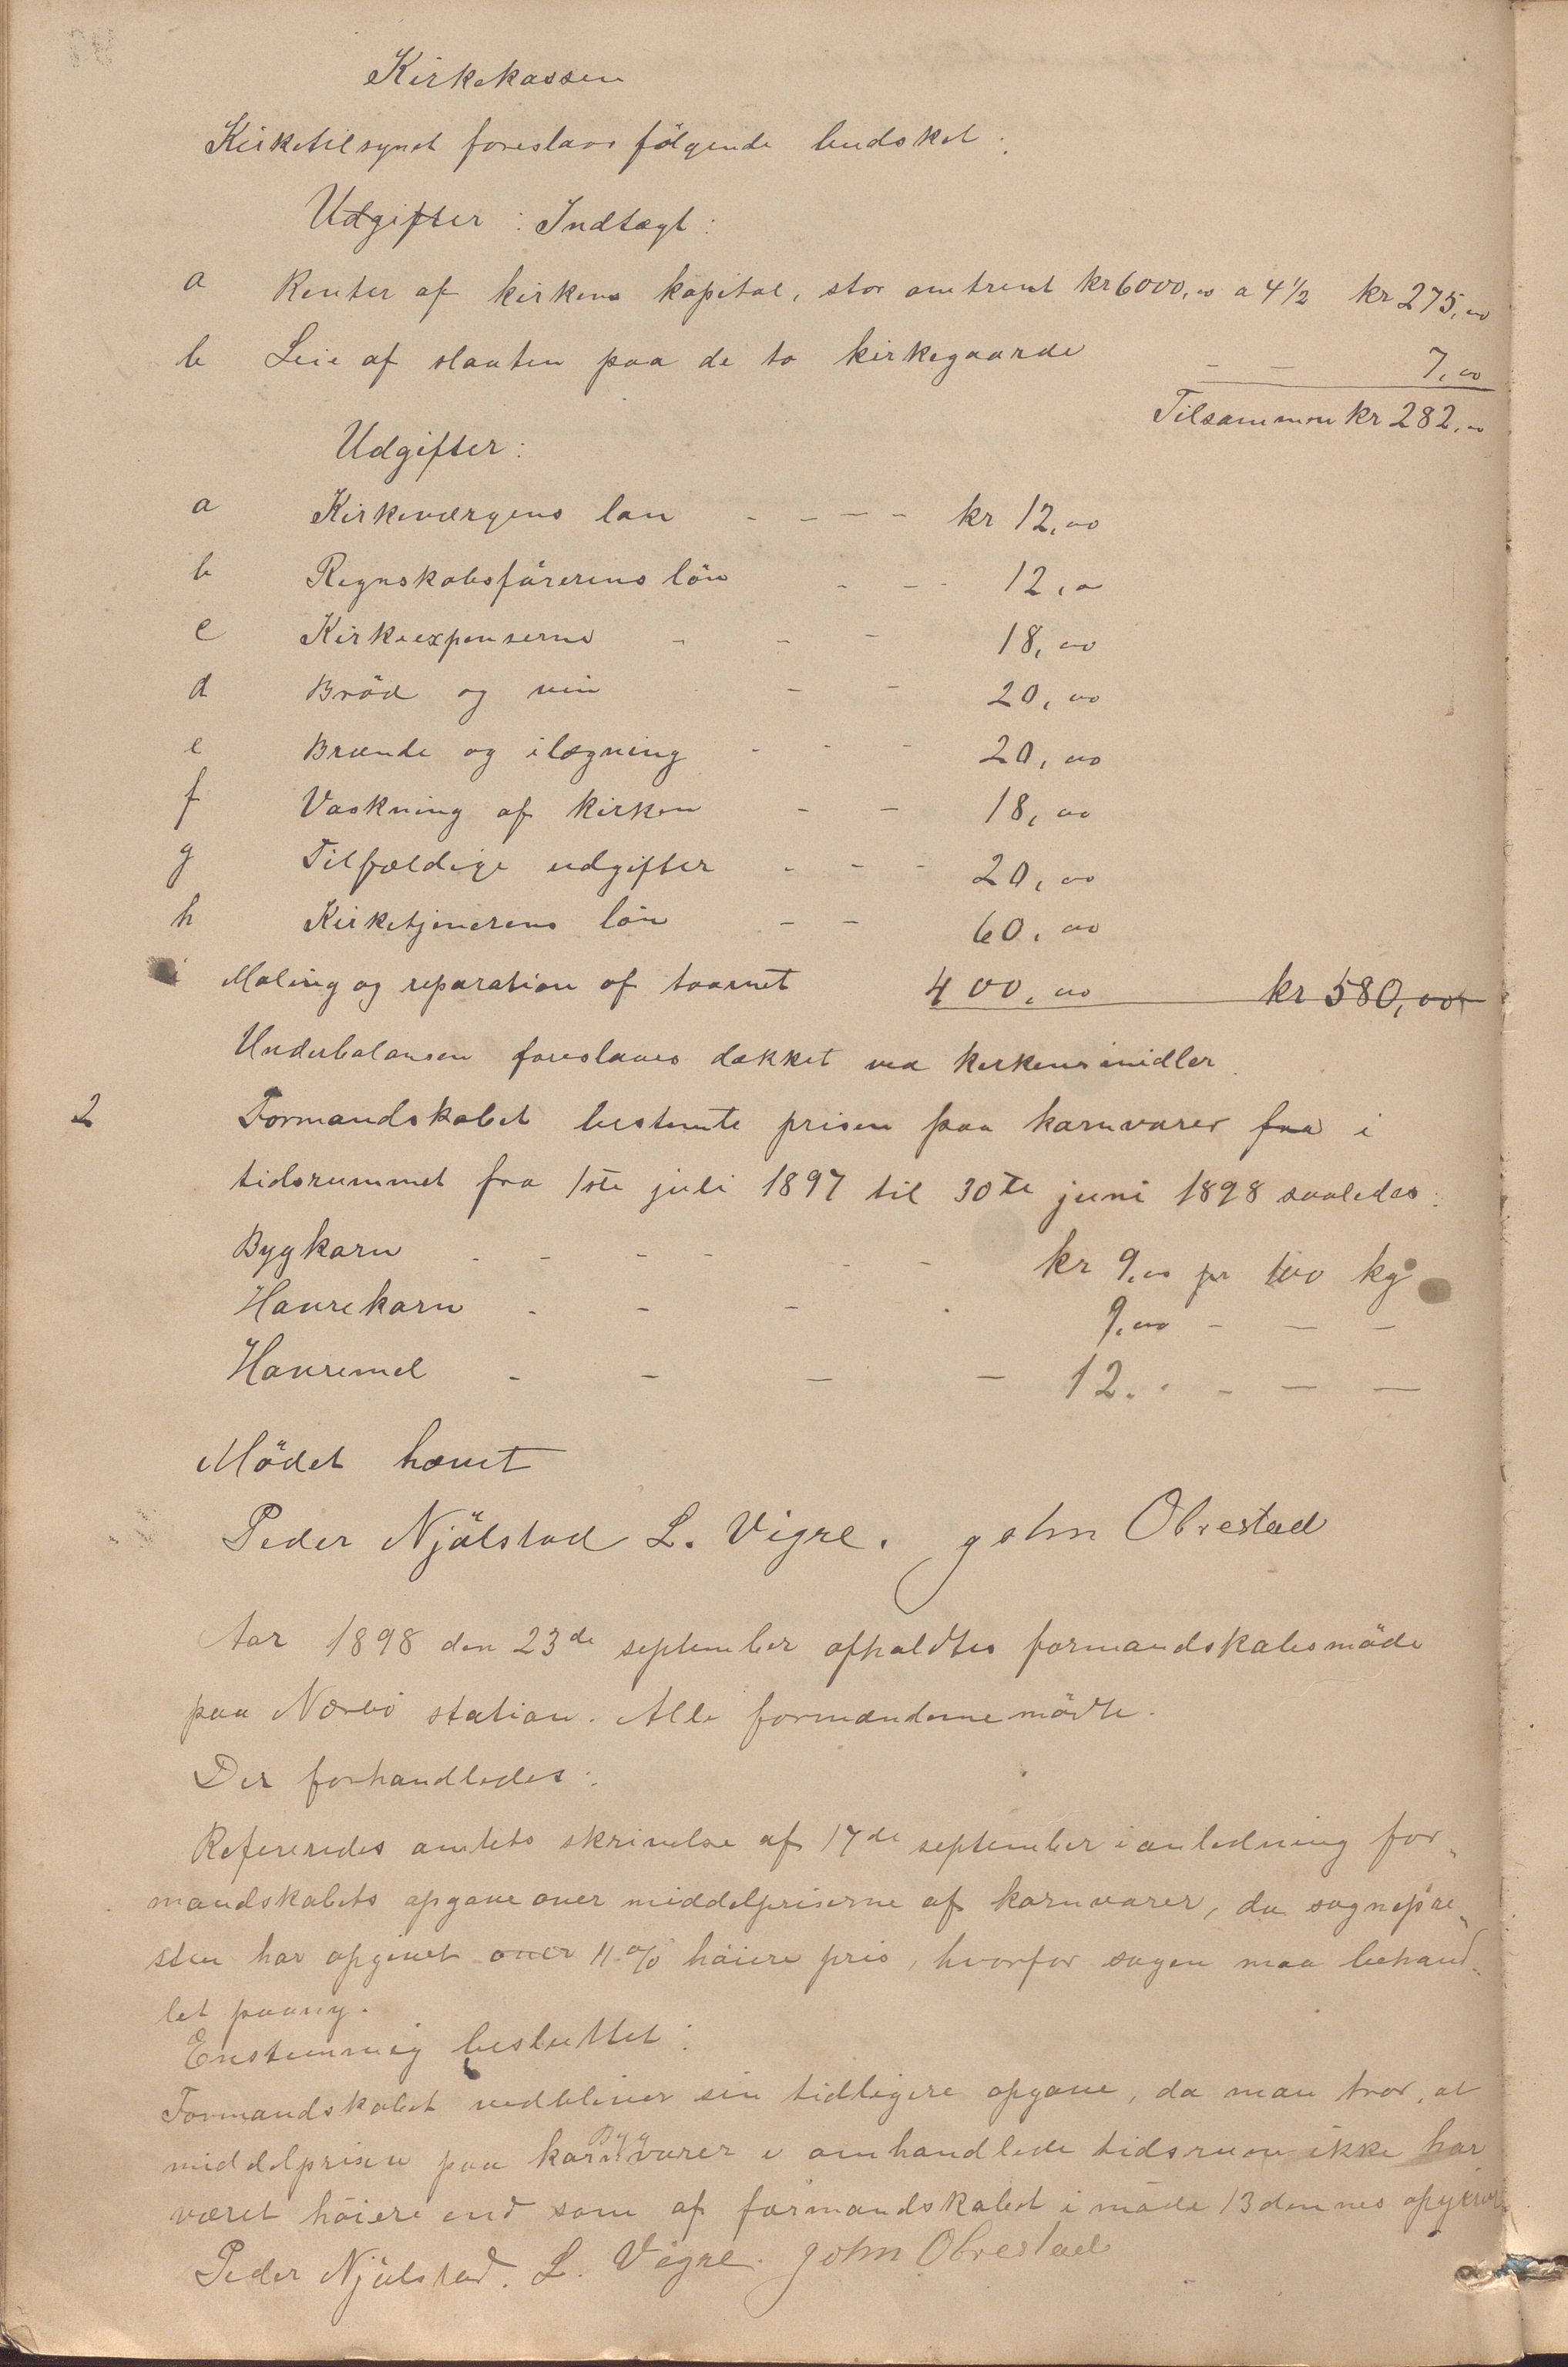 Kirkekassen
Kirketilsynet foreslaar følgende budsket:
Udgifter: Indtægt:
a Renter af kirkens kapital, stor omtrent kr 6000,00 a 4 1/2 kr 275,00
b Leie af slaatten paa de to kirkegaarde - - 7,00
Tilsammen kr 282,00
Udgifter:
a Kirkeværgens løn - - - - kr 12,00
b Regnskabsførerens løn - - - 12,00
c Kirkeexpenserne - - - 18,00
d Brød og vin - - 20,00
e Brænde og ilægning - - - 20,00
f Vaskning af kirken - - 18,00
g Tilfældige udgifter - - - 20,00
h Kirketjenerens løn - - 60,00
i Maling og reparation af taarnet 400,00 kr 580,00
Underbalansen foreslaaes dækket ved kirkens midler.
2 Formandskabet bestemte prisen paa kornvarer fra i
tidsrummet fra 1ste juli 1897 til 30te juni 1898 saaledes:
Bygkorn - - - - - - kr 9,00 pr 100 kg
Havrekorn - - - - 9,00 - - -
Havremel - - - - 12. - - - -
Mødet hævet
Peder Njålstad L. Vigre. John Obrestad
Aar 1898 den 23de september afholdtes formandskabsmøde
paa Nærbø station. Alle formændene mødte.
Der forhandledes:
Refereredes amtets skrivelse af 17de september i anledning for-
mandskabets opgave over middelpriserne af kornvarer, da sognepre-
sten har opgivet over 11 % høiere pris, hvorfor sagen maa behand-
let paany.
Enstemmig besluttet:
Formandskabet vedbliver sin tidligere opgave, da man tror, at
Byg
middelprisen paa kornvarer i omhandlede tidsrum ikke har
været høiere end som af formandskabet i møde 13 dennes opgivet
Peder Njålstad. L. Vigre. John Obrestad